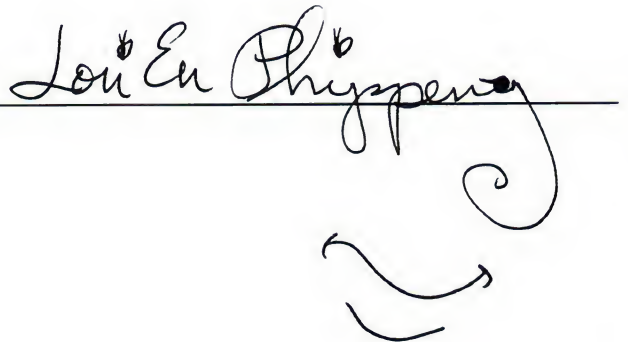 Lori En Phippeny